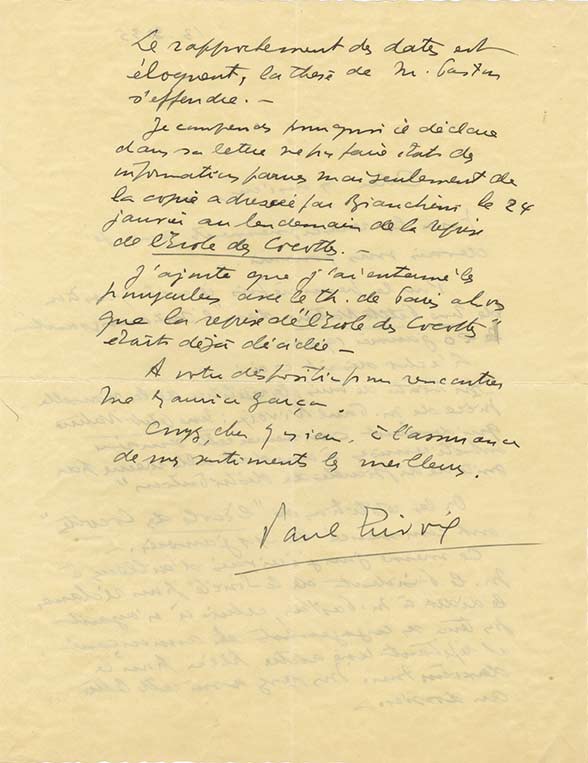 Le rapprochement des dates est
éloquent, la thèse de M. Gaston
s'effondre. —
Je comprends pourquoi il déclare
dans sa lettre ne pas faire état des
informations parues mais seulement de
la copie adressée par Bianchini le 24
janvier au lendemain de la reprise
de l'École des Cocottes. —
J'ajoute que j'ai entamé les
pourparlers avec le th. de Paris alors
que la reprise de "l'École des Cocottes"
était déjà décidée —
A votre disposition pour rencontrer
Me Maurice Garçon.
Croyez, cher Monsieur, à l'assurance
de mes sentiments les meilleurs.
Paul